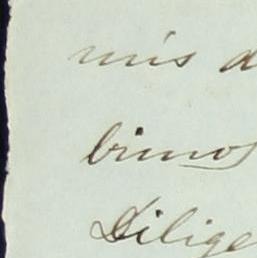 mis d
bimos
Dilige